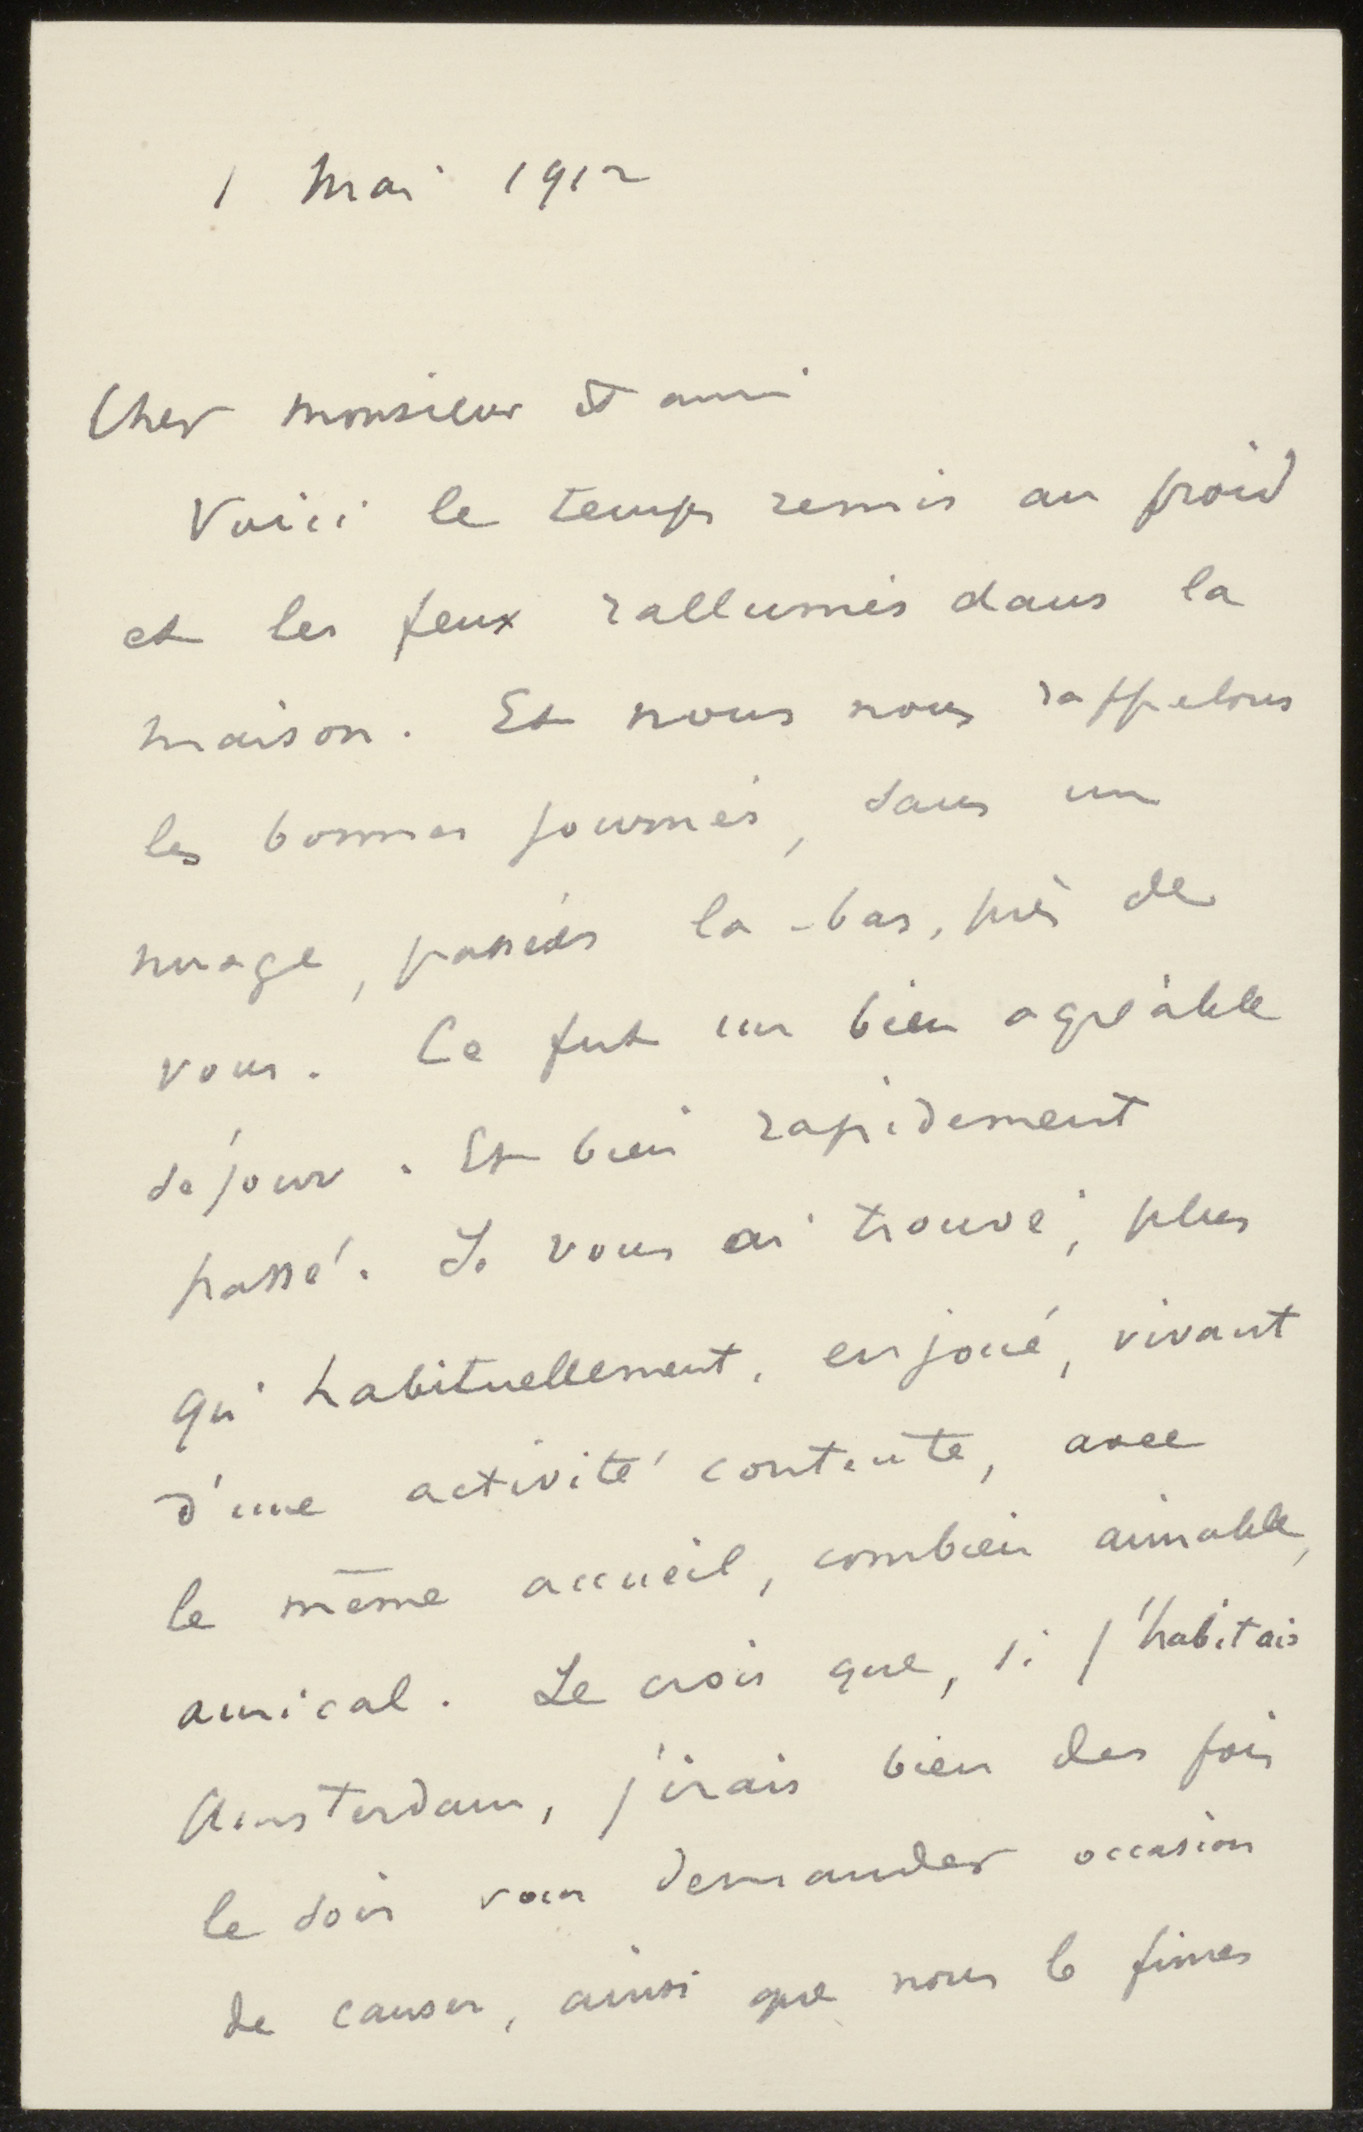 1 Mai 1912
Cher monsieur et ami
Voici le temps remis au froid
et les feux rallumés dans la
maison. Et nous nous rappelons
les bonnes journées, sans un
nuage, passées la-bas, près de
vous. Ce fut un bien agréable
séjour. Et bien rapidement
passé. Je vous ai trouvé, plus
qu'habituellement, enjoué, vivant
d'une activité contente, avec
le même accueil, combien aimable,
amical. Je crois que, si j'habitais
Amsterdam, j'irais bien des fois
le soir vous demander occasion
de causer, ainsi que nous le fimes